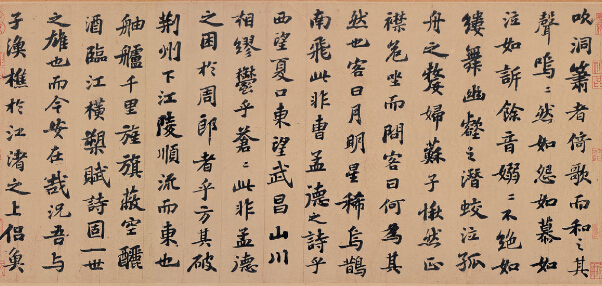 吹洞簫者倚歌而和之其
聲嗚〻然如怨如慕如
泣如訴餘音嫋〻不絕如
縷舞幽壑之潛蛟泣孤
舟之嫠婦蘇子愀然正
襟危坐而問客曰何為其
然也客曰月明星稀烏鵲
南飛此非曹孟德之詩乎
西望夏口東望武昌山川
相繆鬱乎蒼〻此非孟德
之困於周郎者乎方其破
荊州下江陵順流而東也
舳艫千里旌旗蔽空釃
酒臨江橫槊賦詩固一世
之雄也而今安在哉況吾與
子漁樵於江渚之上侶魚